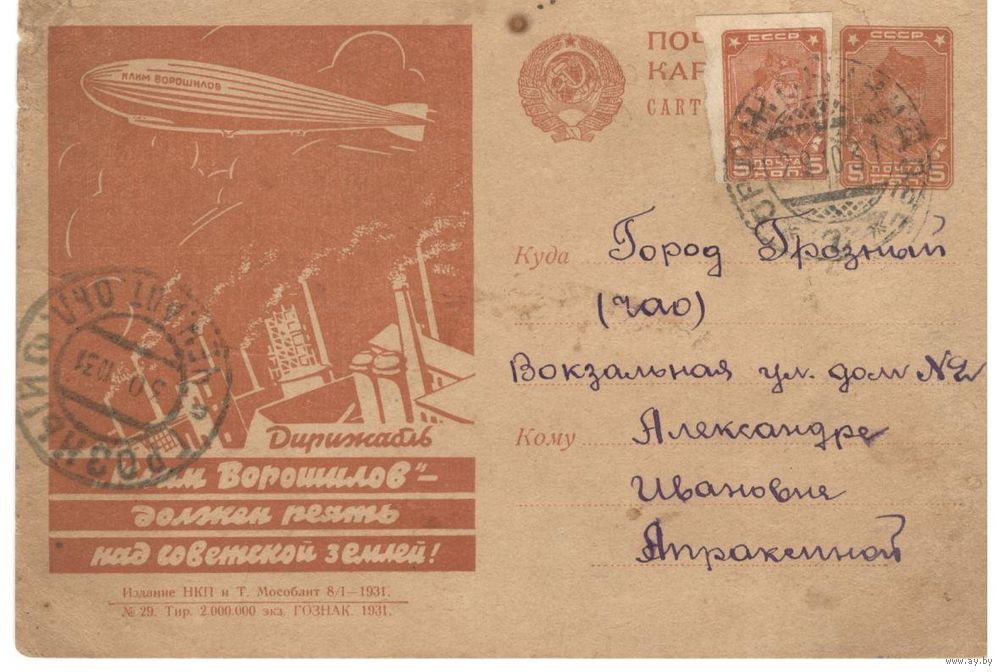 КЛИМ ВОРОШИЛОВ
Дирижабль
„Клим Ворошилов"–
должен реять
над советской землей!
Издание НКП и Т. Мособлит 8/I—1931.
№ 29. Тир. 2.000.000 экз. ГОЗНАК. 1931.
ГРОЗНЫЙ
30 10 31
ПОЧ
КАР
CART
СССР
5 ПОЧТА 5
КОП.
СССР
5 ПОЧТА 5
КОП.
Куда Город Грозный
(ЧАО)
Вокзальная ул. дом № 2
Кому Александре
Ивановне
Апраксиной
www.ay.by